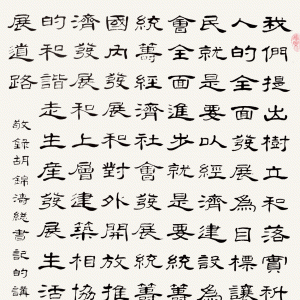 我們提出樹立和落實
人的全面發展為目標讓
民就是要以經濟建設為
會全面進步就是要統籌
統籌經濟社會發展統籌
國內發展和對外開放推
濟發展和上層建築相協
的和諧走生產發展生活
展道路
敬錄胡錦濤總書記的講